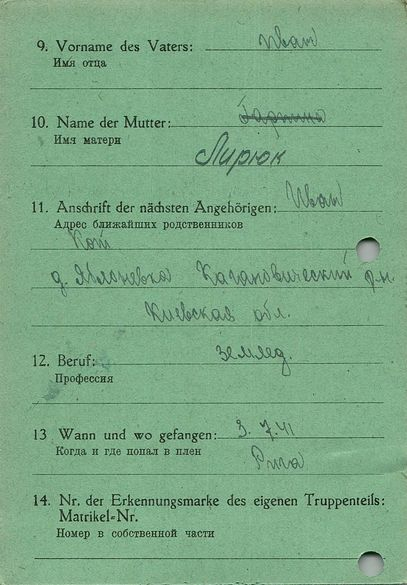 9. Vorname des Vaters: Иван
Имя отца
10. Name der Mutter:
Имя матери
Лирюк
11. Anschrift der nächsten Angehörigen: Иван
Адрес ближайших родственников
Кот
д. Яблоневка Кагановический р-н
Киевская обл.
12. Beruf: землед.
Профессия
13 Wann und wo gefangen: 3.7.41
Когда и где попал в плен
Рига
14. Nr. der Erkennungsmarke des eigenen Truppenteils:
Matrikel=Nr.
Номер в собственной части